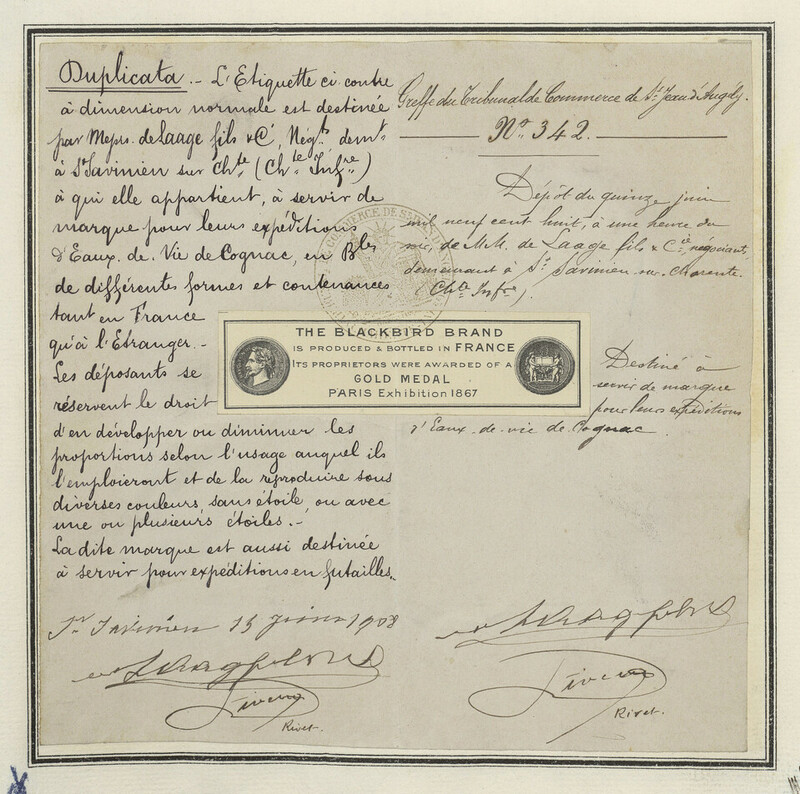 Duplicata.- L'Etiquette ci-contre
à dimension normale est destinée
par Meßrs. de Laage fils & Cie, Négts, demts
à St Savinien sur Chte (Chte Infre)
à qui elle appartient, à servir de
marque pour leurs expéditions
d'Eaux-de-Vie de Cognac, en Bles
de différentes formes et contenances
tant en France
qu'à l'Etranger.-
Les déposants se
réservent le droit
d'en développer ou diminuer les
proportions selon l'usage auquel ils
l'emploieront et de la reproduire sous
diverses couleurs, sans étoile, ou avec
une ou plusieurs étoiles.-
La dite marque est aussi destinée
à servir pour expéditions en futailles.
St Savinien 15 juin 1908
Rivet.
Greffe du Tribunal de Commerce de St Jean d'Angély.
No. 342.
Dépôt du quinze juin
mil neuf cent huit, à une heure du
soir, de M.M. de Laage fils & Cie, négociants
demeurant à St Savinien sur Charente.
(Chte Infre).
Destiné à
servir de marque
pour leurs expéditions
d'Eaux-de-vie de Cognac.
Rivet.
THE BLACKBIRD BRAND
IS PRODUCED & BOTTLED IN FRANCE
ITS PROPRIETORS WERE AWARDED OF A
GOLD MEDAL
PARIS Exhibition 1867
COMMERCE DE ST